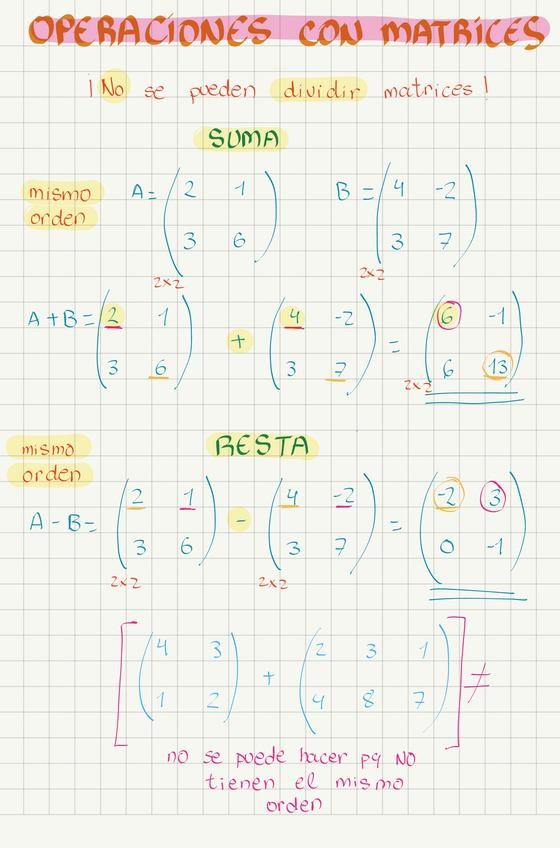 OPERACIONES CON MATRICES
¡No se pueden dividir matrices!
SUMA
mismo orden
A = ( 2 1 ; 3 6 ) 2x2 B = ( 4 -2 ; 3 7 ) 2x2
A+B = ( 2 1 ; 3 6 ) + ( 4 -2 ; 3 7 ) = ( 6 -1 ; 6 13 ) 2x2
RESTA
mismo orden
A-B = ( 2 1 ; 3 6 ) 2x2 - ( 4 -2 ; 3 7 ) 2x2 = ( -2 3 ; 0 -1 )
[ ( 4 3 ; 1 2 ) + ( 2 3 1 ; 4 8 7 ) ] ≠
no se puede hacer pq NO
tienen el mismo
orden